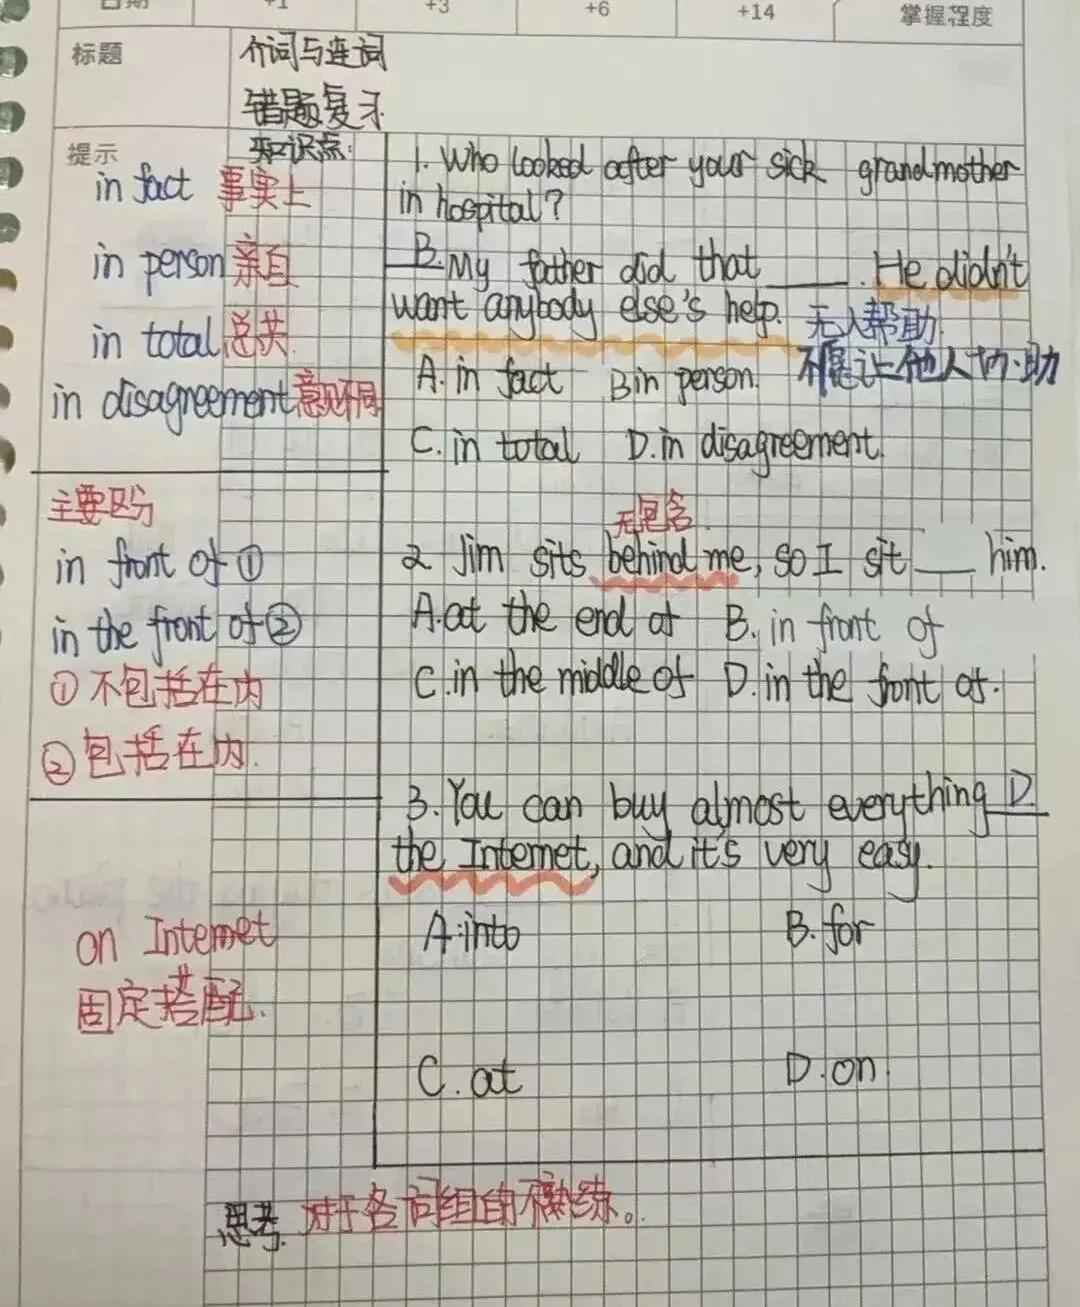 日期 +1 +3 +6 +14 掌握程度
标题 介词与连词
错题复习
提示 知识点:
in fact 事实上
in person 亲自
in total 总共
in disagreement 意见不同
主要区分
in front of ①
in the front of ②
① 不包括在内
② 包括在内.
on Internet
固定搭配.
1. Who looked after your sick grandmother
in hospital?
B. My father did that ____. He didn't
want anybody else's help. 无人帮助.
不愿让他人协助
A. in fact B in person.
C. in total D. in disagreement.
无包含.
2 Jim sits behind me, so I sit ___ him.
A. at the end of B. in front of
C. in the middle of D. in the front of.
3. You can buy almost everything D.
the Internet, and it's very easy.
A. into B. for
C. at D. on.
思考. 对于各词组的不熟练。